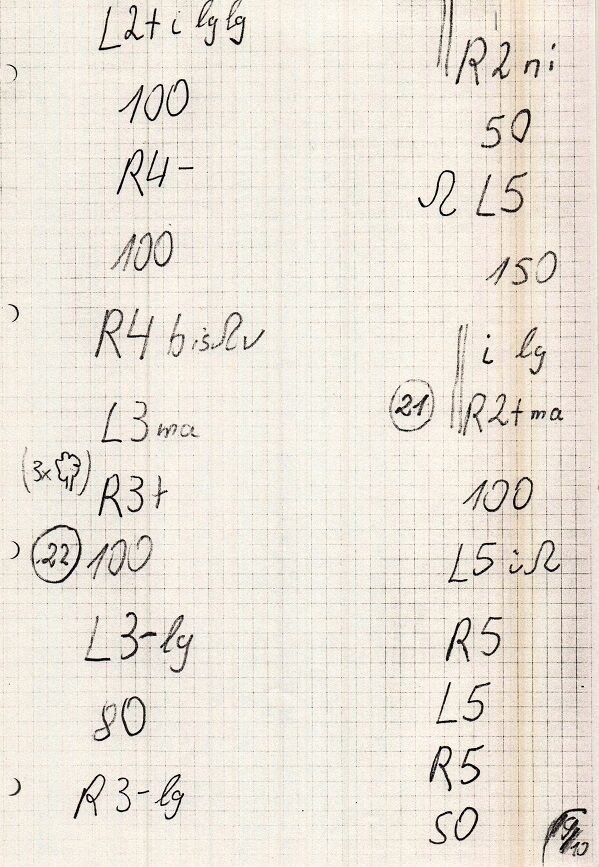 L2+ i lg lg
100
R4-
100
R4 bis Ω v
L3 ma
(3x )
R3+
22 100
L3- lg
80
R3- lg
R2 ni
50
Ω L5
150
i lg
21 R2+ ma
100
L5 i Ω
R5
L5
R5
50